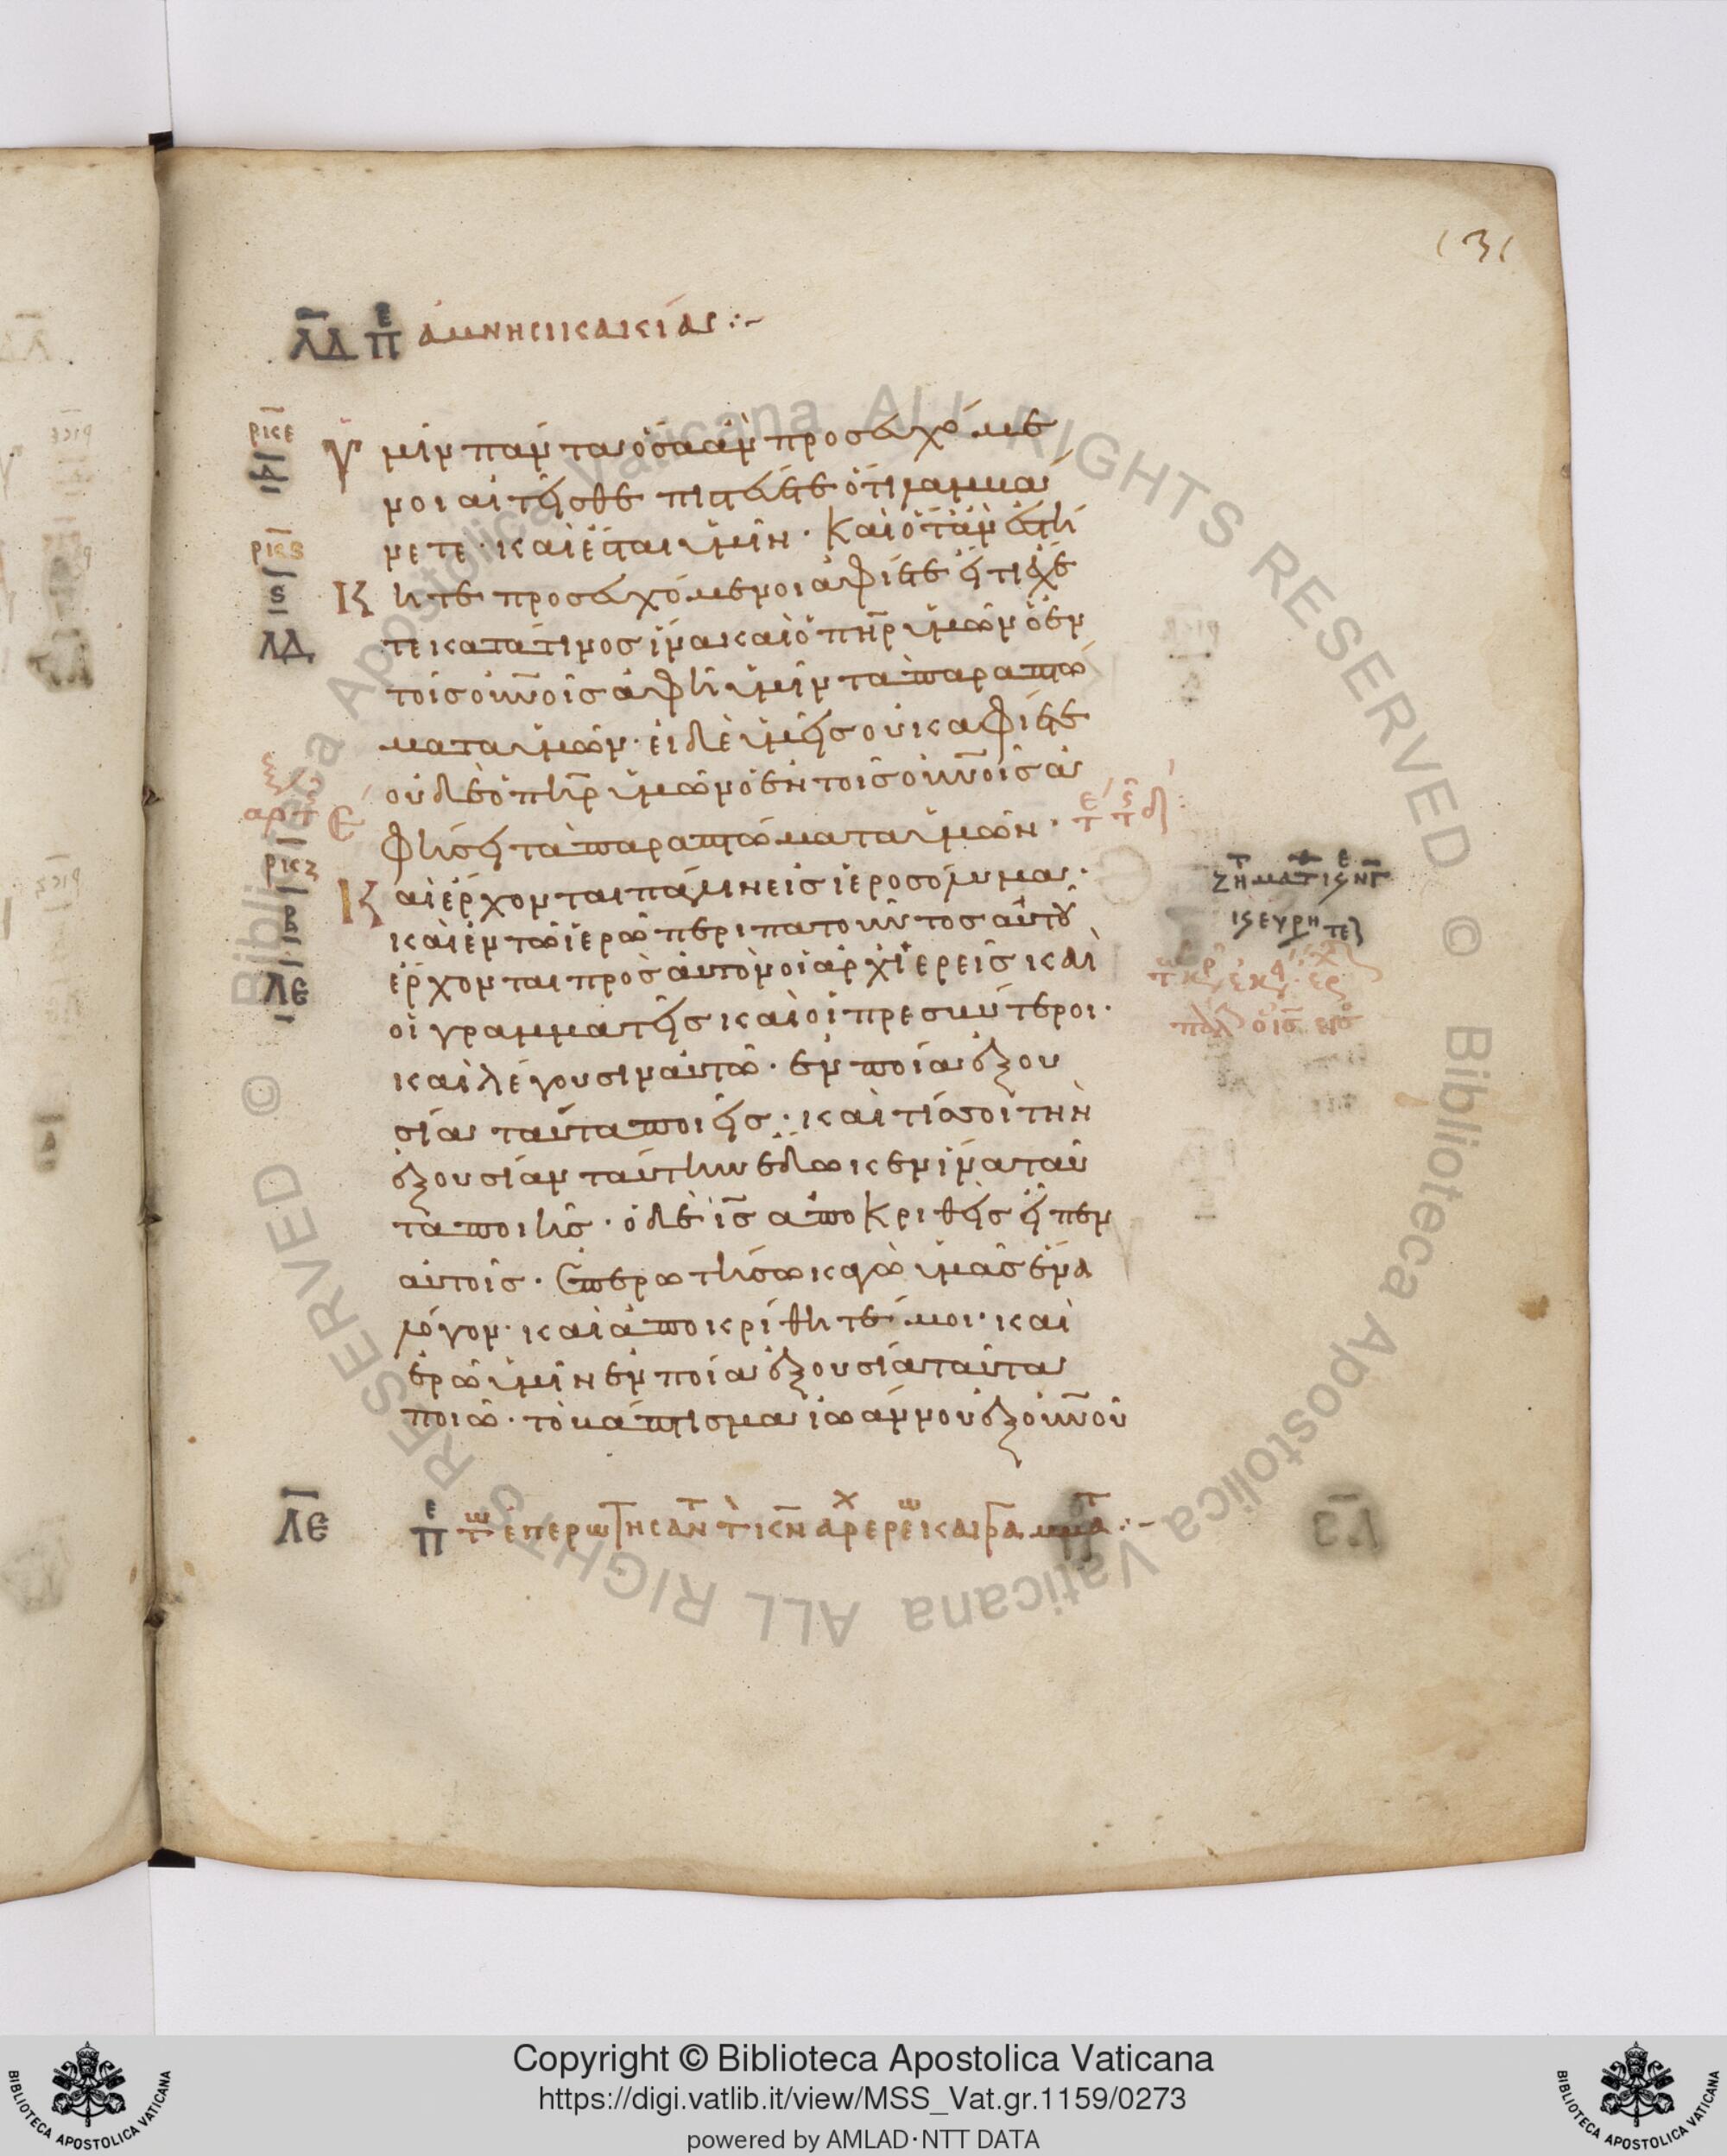 131
ΛΔ Πε ἀμνησικακίας :~
ρκε
ὑμῖν πάντα ὅσα ἂν προσευχόμε
νοι αἰτεῖσθε πιστεύετε ὅτι λαμβά
νετε· καὶ ἔσται ὑμῖν· Καὶ ὅταν στή
ρκς
ς
ΛΔ
κητε προσευχόμενοι ἀφίετε εἴ τι ἔχε
τε κατά τινος ἵνα καὶ ὁ πηρ ὑμῶν ὁ ἐν
τοῖς οὐνοῖς ἀφῆ ὑμῖν τὰ παραπτώ
ματα ὑμῶν· εἰ δὲ ὑμεῖς οὐκ ἀφίετε
οὐδὲ ὁ πηρ ὑμῶν ὁ ἐν τοῖς οὐνοῖς ἀ
φήσει τὰ παραπτώματα ὑμῶν·
ρκζ
β
ΛΕ
Καὶ ἔρχονται πάλιν εἰς ἱεροσόλυμα·
καὶ ἐν τῶ ἱερῶ περιπατοῦντος αὐτοῦ
ἔρχονται πρὸς αὐτὸν οἱ ἀρχιερεῖς καὶ
οἱ γραμματεῖς καὶ οἱ πρεσβύτεροι·
καὶ λέγουσιν αὐτῶ· ἐν ποία ἐξου
σία ταῦτα ποιεῖς· καὶ τίς σοι τὴν
ἐξουσίαν ταύτην ἔδωκεν ἵνα ταῦ
τα ποιῆς· ὁ δὲ ις ἀποκριθεὶς εἶπεν
αὐτοῖς· Ἐπερωτήσω κἀγὼ ὑμᾶς ἕνα
λόγον· καὶ ἀποκρίθητέ μοι· καὶ
ἐρῶ ὑμῖν ἐν ποία ἐξουσία ταῦτα
ποιῶ· τὸ βάπτισμα ἰωάννου ἐξ οὐνοῦ
ΛΕ
Copyright © Biblioteca Apostolica Vaticana
https://digi.vatlib.it/view/MSS_Vat.gr.1159/0273
powered by AMLAD·NTT DATA
BIBLIOTECA APOSTOLICA VATICANA
BIBLIOTECA APOSTOLICA VATICANA
© Biblioteca Apostolica Vaticana ALL RIGHTS RESERVED © Biblioteca Apostolica Vaticana ALL RIGHTS RESERVED